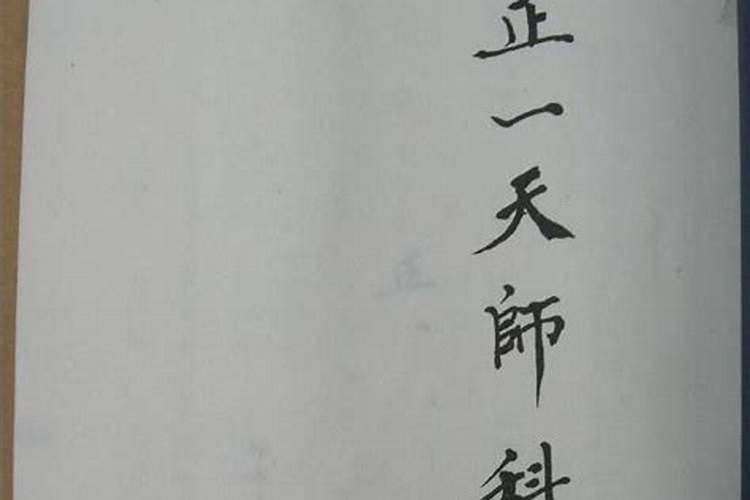 正一天師科